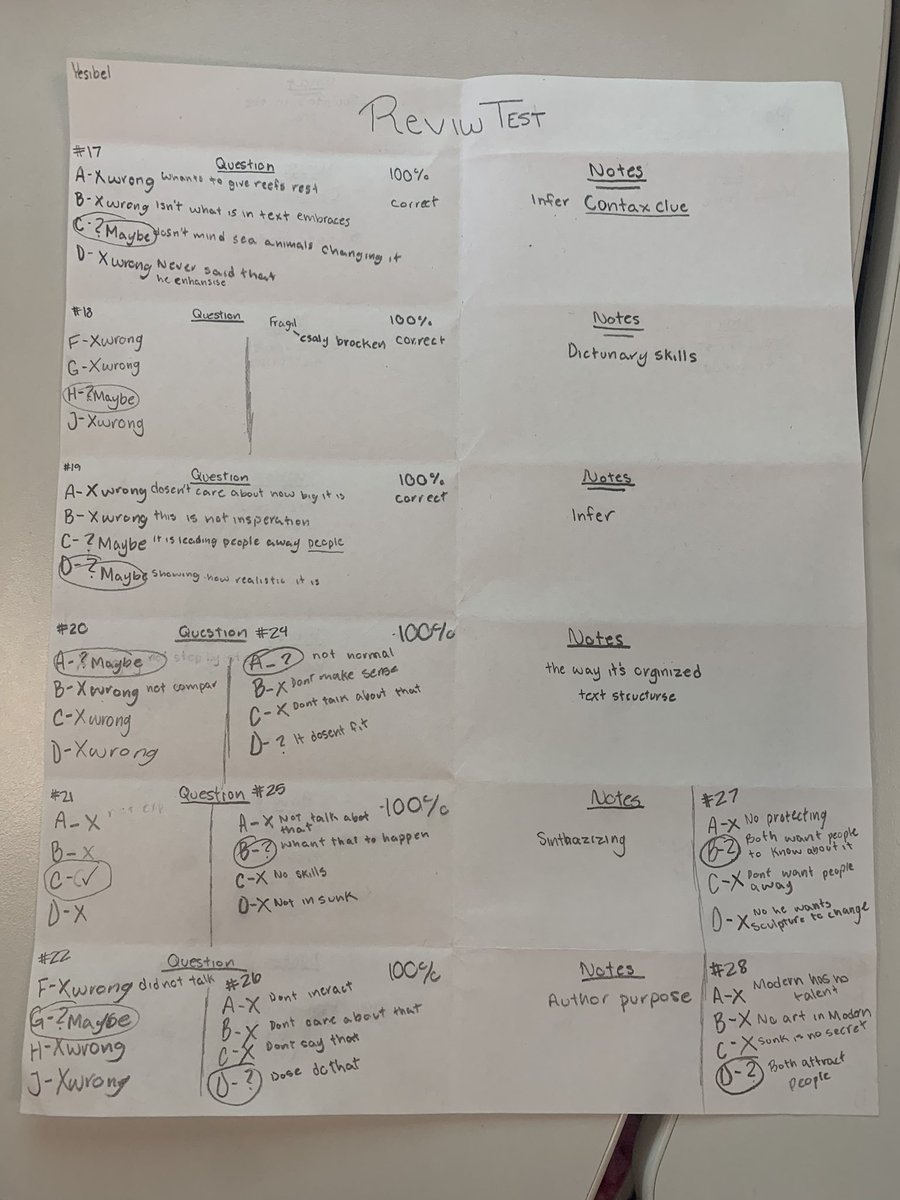 Yesibel
Reviw Test
#17
Question
100%
correct
A-X wrong whants to give reefs rest
B-X wrong Isn't what is in text embraces
C-? Maybe dosn't mind sea animals changing it
D-X wrong Never said that
he enhansise
Notes
Infer Contax clue
#18
Question
100%
correct
Fragil
esaly brocken
F-X wrong
G-X wrong
H-? Maybe
J-X wrong
Notes
Dictunary skills
#19
Question
100%
correct
A-X wrong dosen't care about how big it is
B-X wrong this is not insperation
C-? Maybe It is leading people away people
D-? Maybe showing how realistic it is
Notes
Infer
#20
Question #24
-100%
A-? Maybe
B-X wrong not compar
C-X wrong
D-X wrong
A-? not normal
B-X Dont make sense
C-X Dont talk about that
D-? It dosent fit
Notes
the way it's orginized
text structurse
#21
Question #25
-100%
A-X
B-X
C-✓
D-X
A-X Not talk abot
that
B-? whant that to happen
C-X No skills
D-X Not in sunk
Notes
Sinthazizing
#27
A-X No protecting
B-? Both want people
to know about it
C-X Dont want people
away
D-X No he wants
sculpture to change
#22
Question
100%
F-X wrong did not talk
G-? Maybe
H-X wrong
J-X wrong
#26
A-X Dont ineract
B-X Dont care about that
C-X Dont say that
D-? Dose do that
Notes
Author purpose
#28
A-X Modern has no
talent
B-X No art in Modern
C-X sunk is no secret
D-? Both attract
people